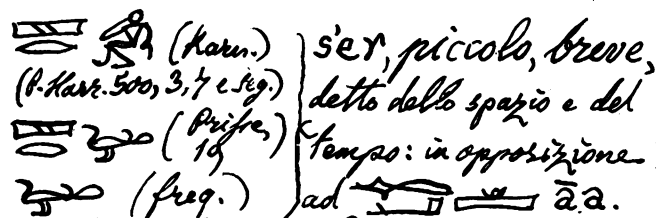 (Karn.)
(P. Harr. 500, 3, 7 e seg.)
(Prisse, 10)
(freq.)
šer, piccolo, breve,
detto dello spazio e del
tempo: in opposizione
ad āa.